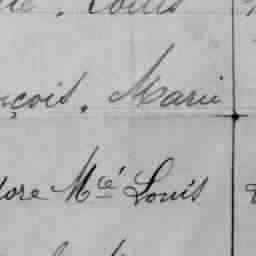 Louis
çois. Marie
dore Mcé Louis